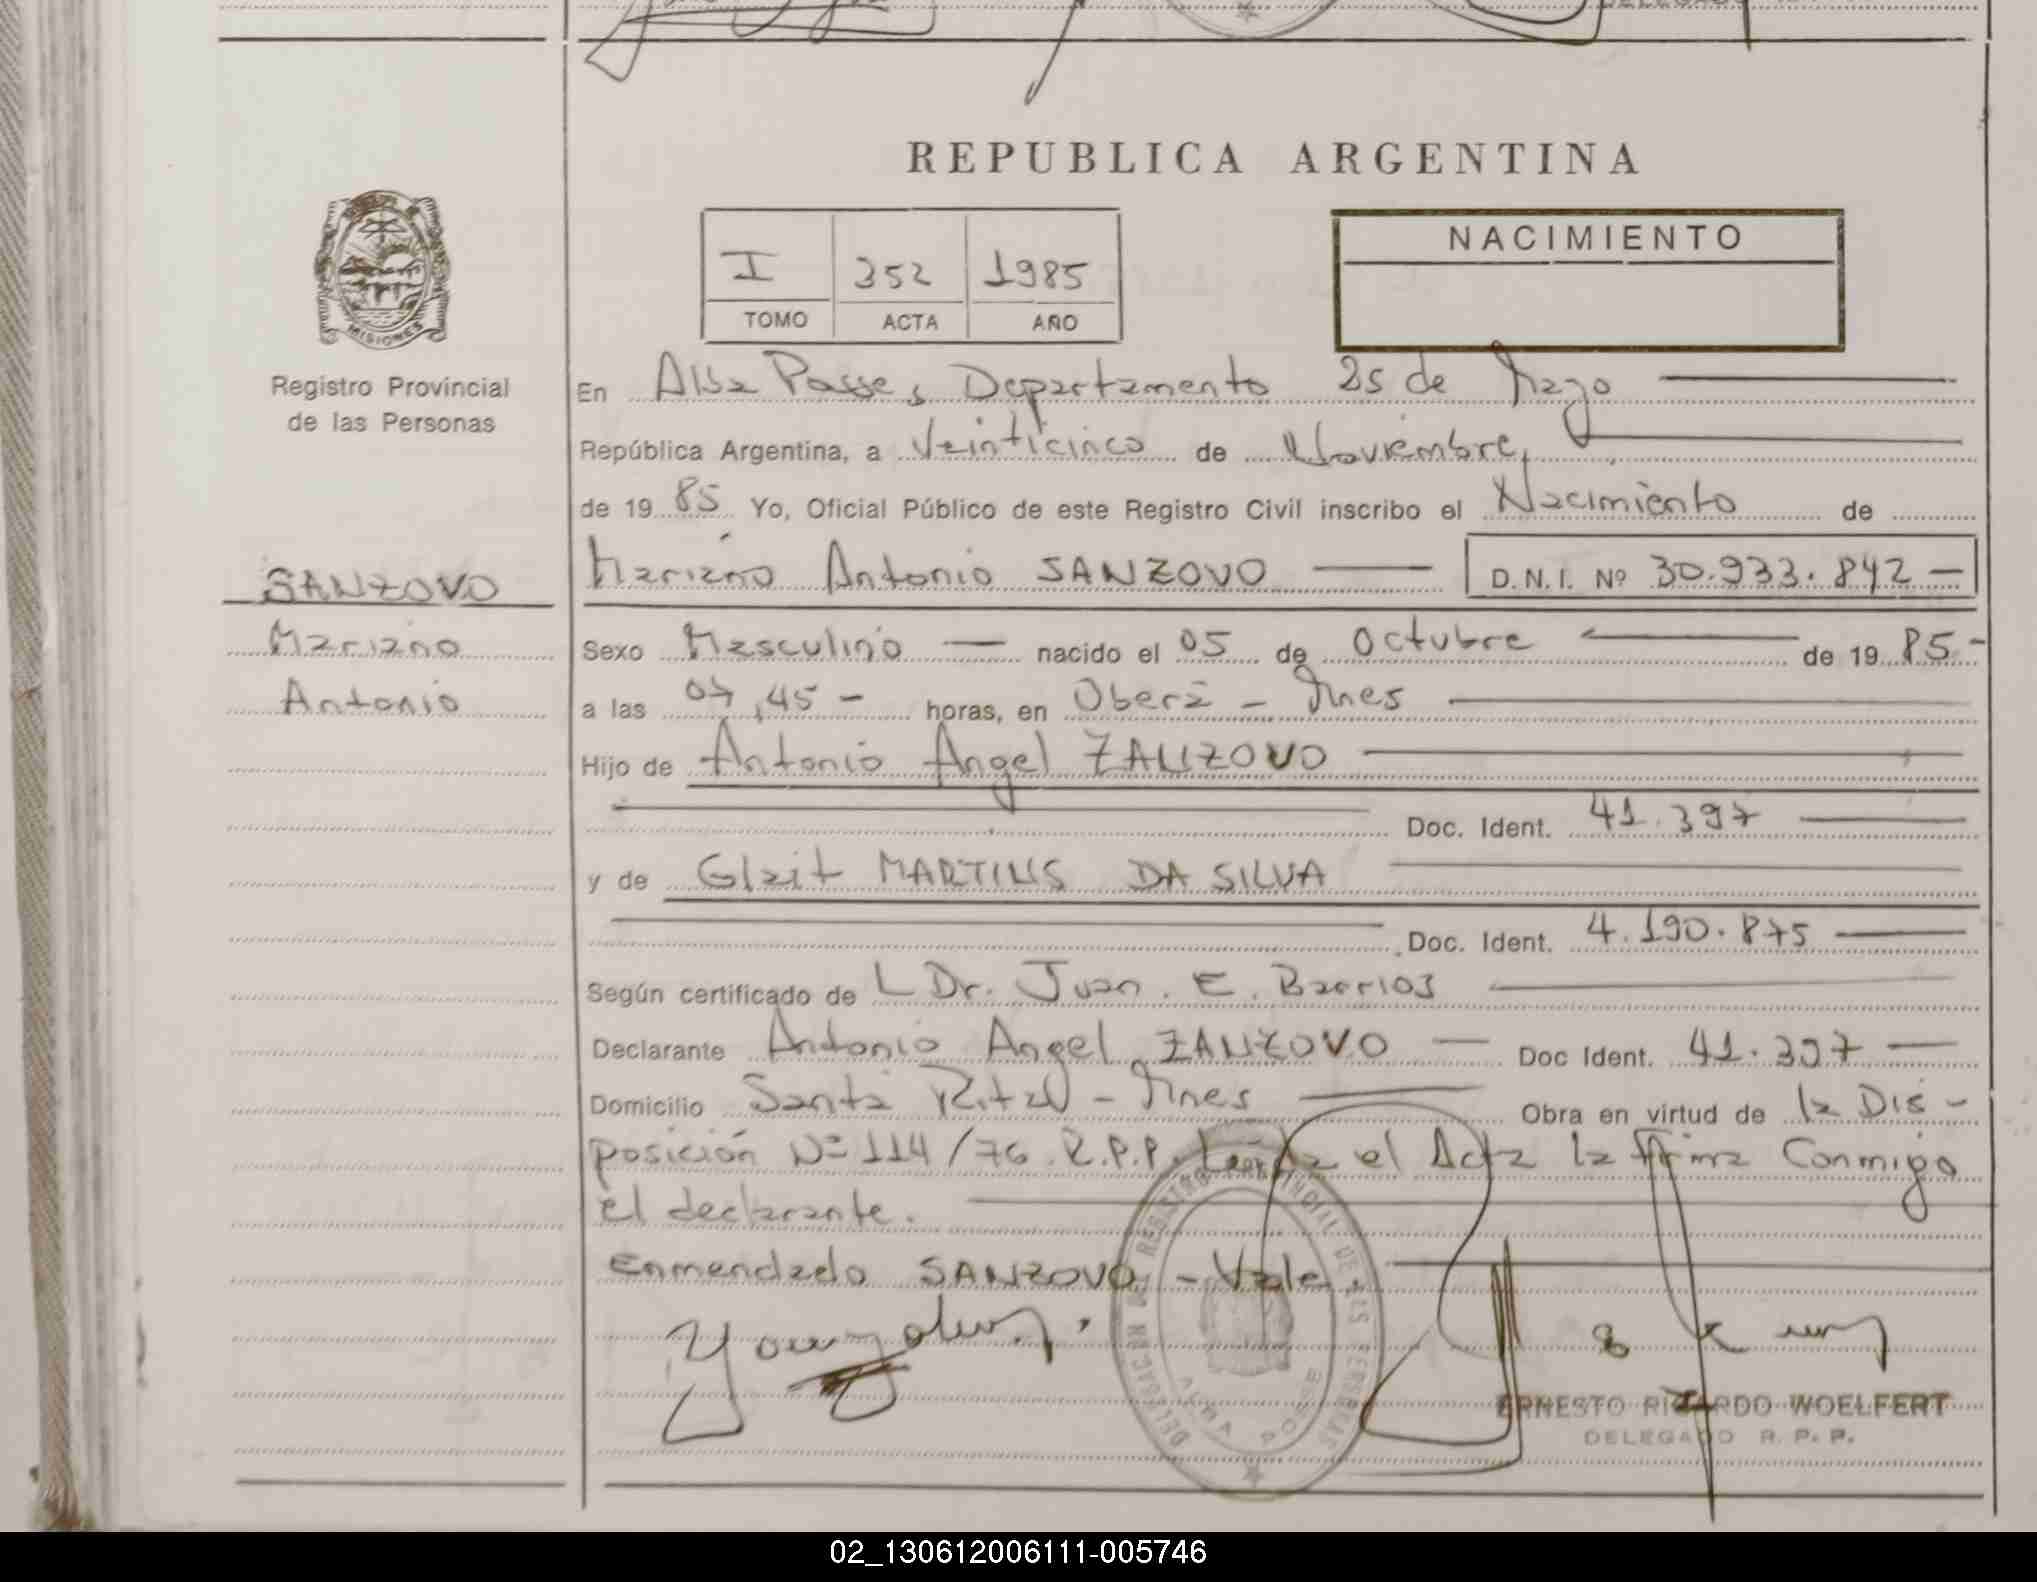 REPUBLICA ARGENTINA
I 352 1985
TOMO ACTA AÑO
NACIMIENTO
MISIONES
Registro Provincial
de las Personas
SANZOVO
Mariano
Antonio
En Alba Posse, Departamento 25 de Mayo
República Argentina, a Veinticinco de Noviembre,
de 19 85 Yo, Oficial Público de este Registro Civil inscribo el Nacimiento de
Mariano Antonio SANZOVO — D.N.I. Nº 30.933.842 —
Sexo Masculino — nacido el 05 de Octubre — de 19 85 -
a las 07,45 - horas, en Oberá - Mnes
Hijo de Antonio Angel ZANZOVO
Doc. Ident. 41.397
y de Glait MARTINS DA SILVA
Doc. Ident. 4.190.875
Según certificado de L Dr. Juan. E. Barrios
Declarante Antonio Angel ZANZOVO — Doc Ident. 41.397 —
Domicilio Santa Rita - Mnes — Obra en virtud de la Dis -
posición Nº 114/76 R.P.P. Leída el Acta la firma Conmigo
el declarante.
Enmendado SANZOVO - Vale
REGISTRO PROVINCIAL DE LAS PERSONAS
DELEGACION
ALBA POSSE
ERNESTO RICARDO WOELFERT
DELEGADO R. P. P.
02_130612006111-005746